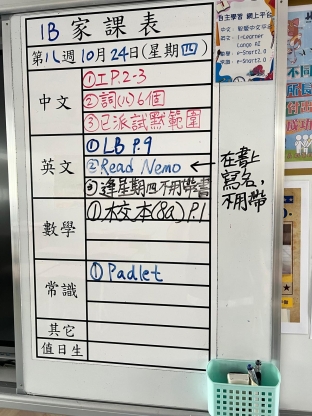 1B 家課表
第八週 10月24日(星期四)
中文
①工P.2-3
②詞(八)6個
③已派試默範圍
英文
①LB P.9
②Read Nemo ←
在書上寫名,不用帶
③逢星期四不用帶書
數學
①校本(8a)P.1
常識
①Padlet
其它
值日生
自主學習 網上平台